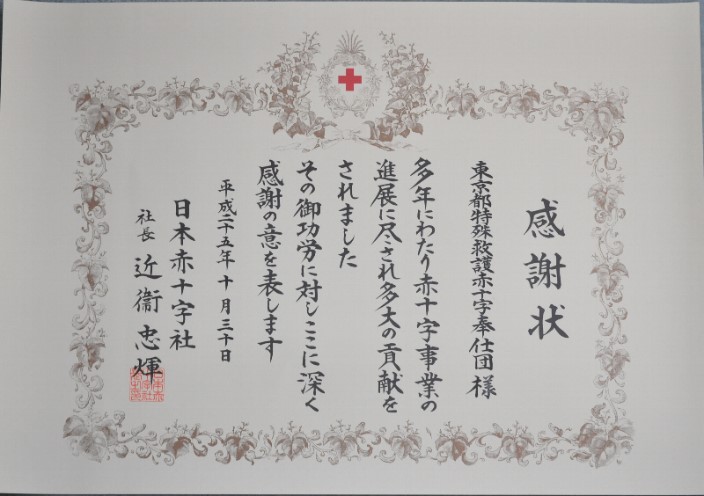 感謝状
東京都特殊救護赤十字奉仕団 様
多年にわたり赤十字事業の
進展に尽され多大の貢献を
されました
その御功労に対しここに深く
感謝の意を表します
平成二十五年十月三十日
日本赤十字社
社長 近衞忠煇